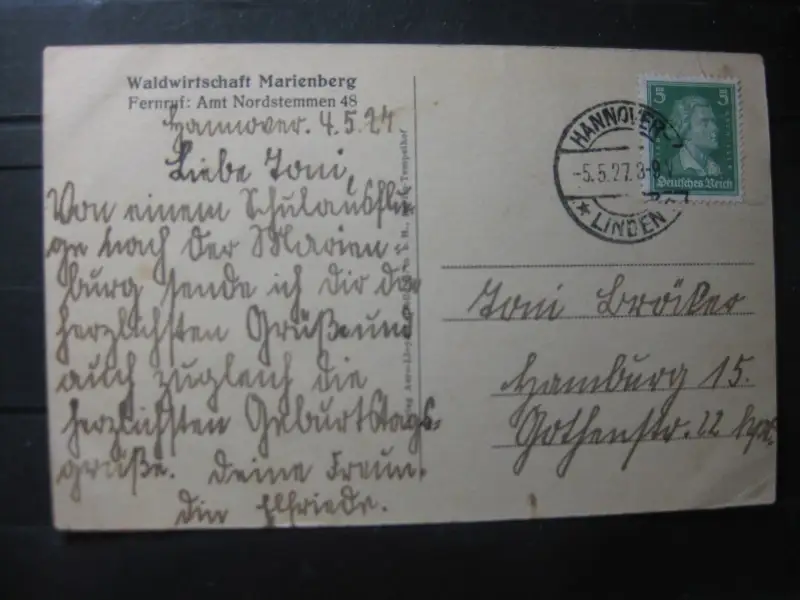 Waldwirtschaft Marienberg
Fernruf: Amt Nordstemmen 48
Hannover. 4.5.27
Liebe Toni,
Von einem Schulausflu-
ge nach der Marien-
burg sende ich dir die
herzlichsten Grüße und
auch zugleich die
herzlichsten Geburtstags-
grüße. Deine Freun-
din Elfriede.
Tempelhof
5 5
Deutsches Reich
HANNOVER
-5.5.27. 8-9
* LINDEN
Toni Bröcker
Hamburg 15.
Gothenstr. 22